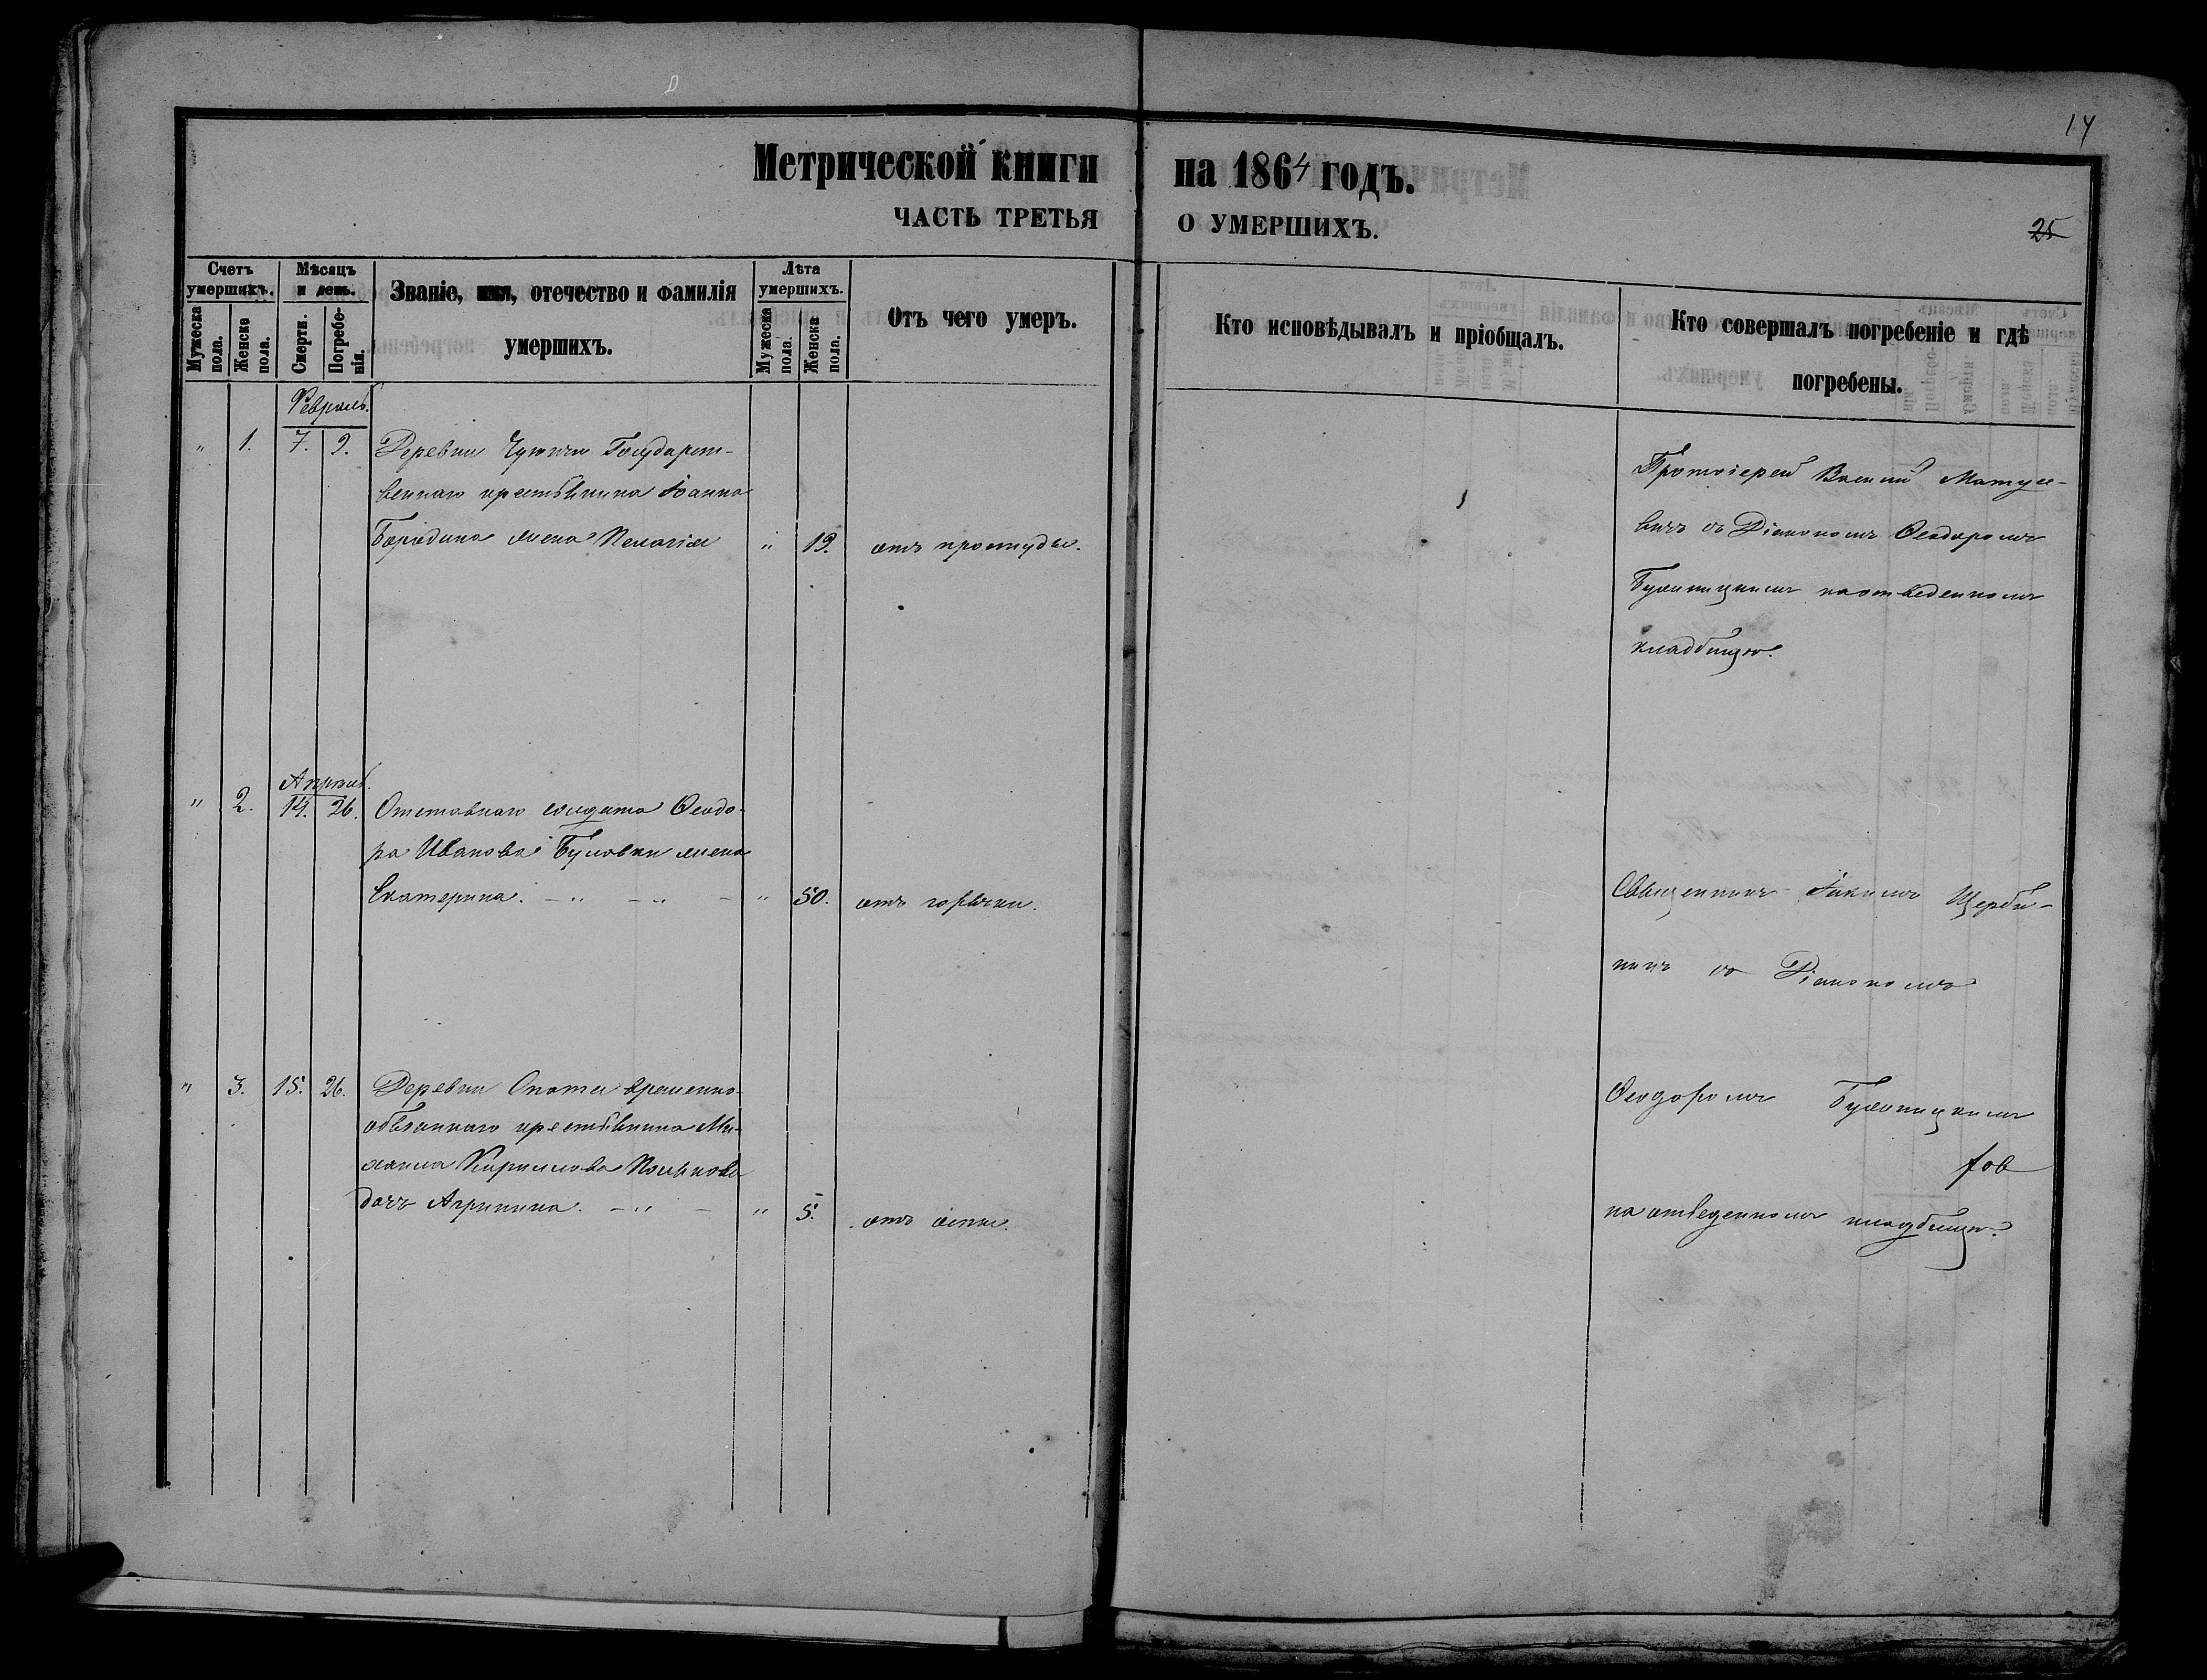 14
Метрической книги на 1864 годъ.
ЧАСТЬ ТРЕТЬЯ О УМЕРШИХЪ.
25
Счетъ умершихъ.
Мужеска пола.
Женска пола.
Мѣсяцъ и день.
Смерти.
Погребенія.
Званіе, имя, отечество и фамилія
умершихъ.
Лѣта умершихъ.
Мужеска пола.
Женска пола.
Отъ чего умеръ.
Кто исповѣдывалъ и пріобщалъ.
Кто совершалъ погребеніе и гдѣ
погребены.
Февраль.
" 1. 7. 9. Деревни Государст-
веннаго крестьянина Іоанна
Бородина жена Пелагія " 19. отъ простуды.
Протоіерей Василій Матусе-
вичъ съ Діакономъ Ѳеодоромъ
на отведенномъ
кладбищѣ.
Апрѣль.
" 2. 14. 26. Отставнаго солдата Ѳеодо-
ра Иванова Буловки жена
Екатерина. - " - " - " 50. отъ горячки.
Священникъ Іакимъ Щерби-
нинъ съ Діакономъ
" 3. 15. 26. Деревни временно-
обязаннаго крестьянина Ми-
хаила Кириллова
дочь Агрипина. - " - " 5. отъ оспы.
Ѳеодоромъ
на отведенномъ кладбищѣ.